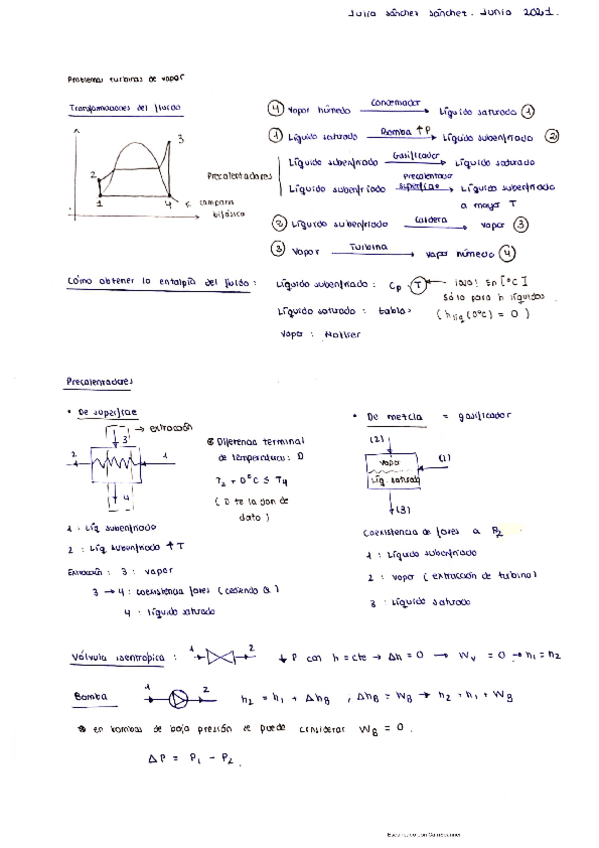 Julia Sánchez Sánchez. Junio 2021.
Problemas turbinas de vapor
Transformaciones del fluido
④ Vapor húmedo Condensador Líquido saturado ①
① Líquido saturado Bomba ↑P Líquido subenfriado ②
Precalentadores
Líquido subenfriado Gasificador Líquido saturado
Líquido subenfriado precalentador superficie Líquido subenfriado
a mayor T
② Líquido subenfriado Caldera vapor ③
③ Vapor Turbina vapor húmedo ④
1 2 3 4
campana
bifásica
Cómo obtener la entalpía del fluido:
Líquido subenfriado: Cp · T ¡ojo! En [°C]
Sólo para h líquidos
Líquido saturado: tablas (hliq (0°C) = 0)
Vapor: Mollier
Precalentadores
• De superficie
→ extracción
3
2 1
4
Diferencia terminal
de temperatura: D
T2 + D°C = T4
(D te la dan de
dato)
1: Líq subenfriado
2: Líq subenfriado ↑T
Extracción: 3: vapor
3 → 4: coexistencia fases (cediendo Q)
4: líquido saturado
• De mezcla = gasificador
(2)
vapor (1)
Líq. saturado
(3)
Coexistencia de fases a P2
1: Líquido subenfriado
2: vapor (extracción de turbina)
3: Líquido saturado
Válvula isentrópica: 1 2 ↓P con h = cte → Δh = 0 → Wv = 0 → h1 = h2
Bomba 1 2 h2 = h1 + ΔhB, ΔhB = WB → h2 = h1 + WB
en bombas de baja presión se puede considerar WB = 0.
ΔP = P1 - P2.
Escaneado con CamScanner